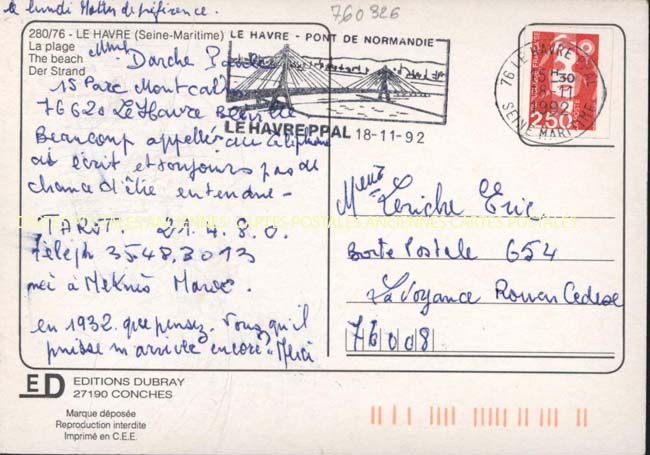 le lundi Matter de préférence.
760326
280/76 - LE HAVRE (Seine-Maritime)
La plage
The beach
Der Strand
Mme Darche
15 Parc Montcalm
76620 Le Havre
Beaucoup appeller au téléphone
où écrit et toujours pas de
chance d'être entendue -
TAROT. 21.4.8.0.
Téléph 3548.3013
née à Meknès Maroc.
en 1932. que pensez. Vous qu'il
puisse m'arrivée encore? Merci
LE HAVRE - PONT DE NORMANDIE
LE HAVRE PPAL 18-11-92
76 LE HAVRE PPAL
15H30
18-11
1992
SEINE MARITIME
2,50
Leriche Eric
Boite Postale 654
La Voyance Rouen Cedex
76008
CARTES POSTALES ANCIENNES CARTES POSTALES ANCIENNES CARTES POSTALES
ED
EDITIONS DUBRAY
27190 CONCHES
Marque déposée
Reproduction interdite
Imprimé en C.E.E.